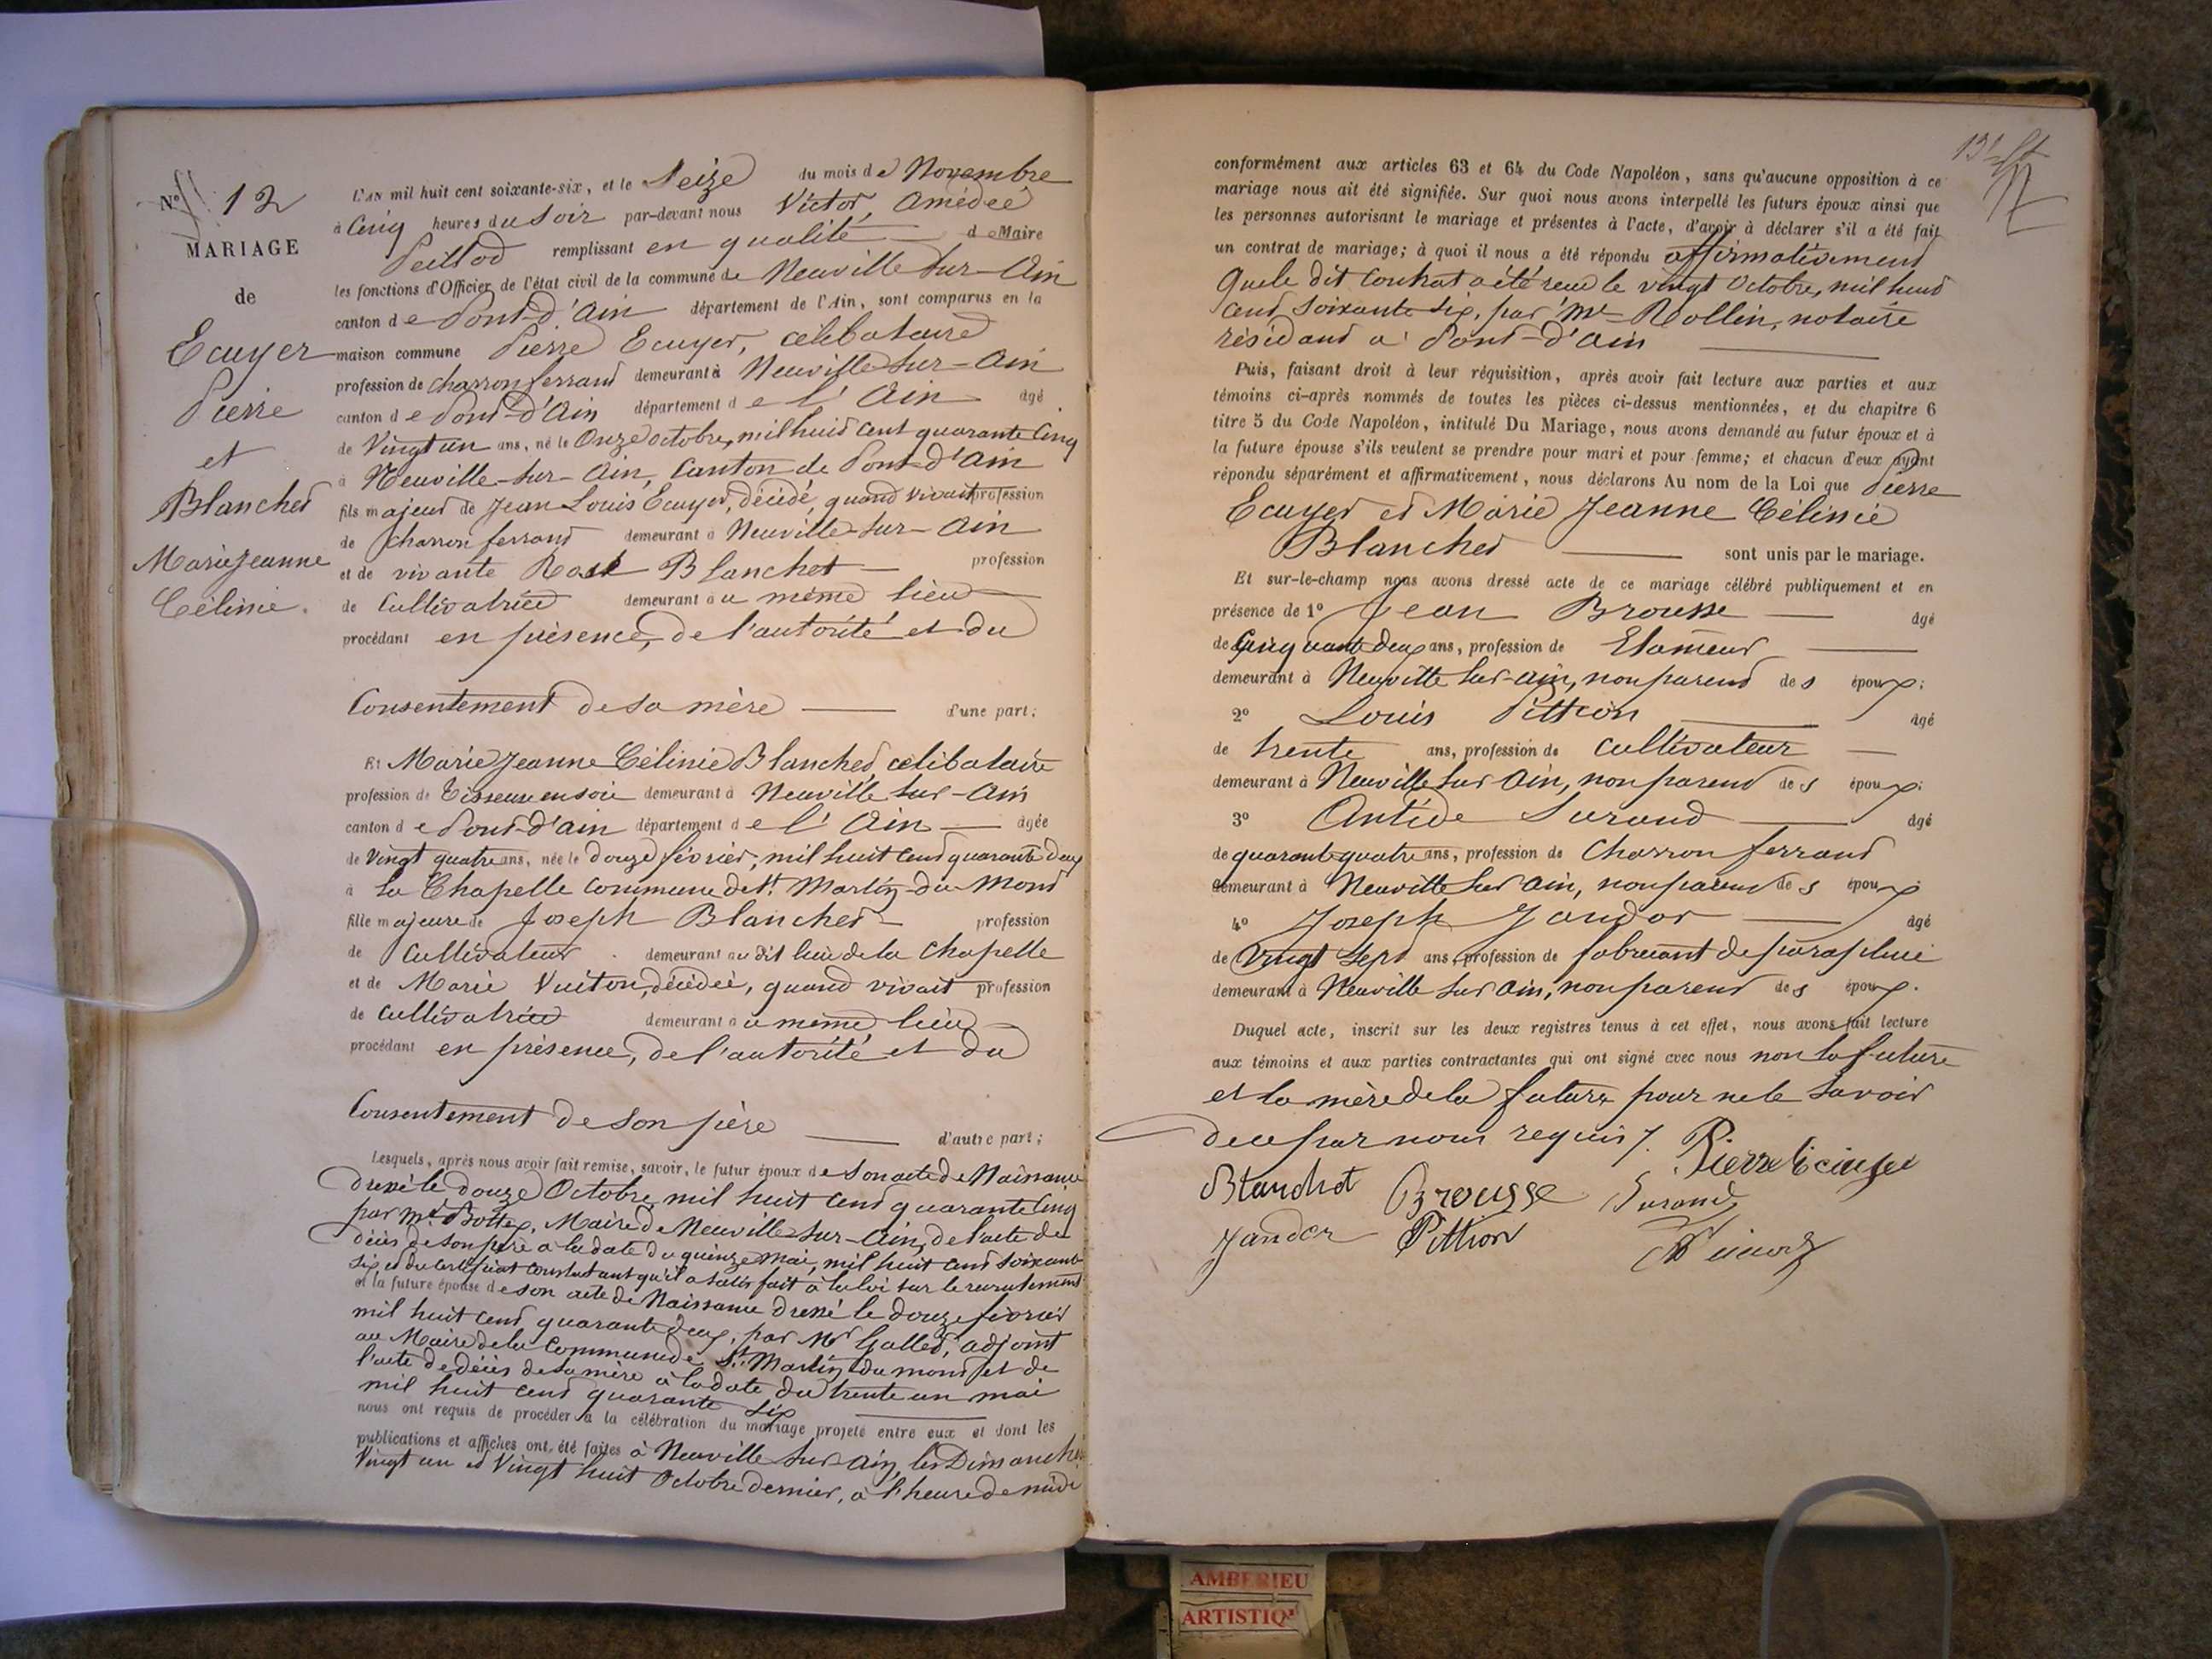 N° 12
MARIAGE
de
Ecuyer
Pierre
et
Blanchet
Marie Jeanne
Célinie.
L'AN mil huit cent soixante-six, et le Seize du mois de Novembre
à Cinq heures du Soir par-devant nous Victor, Amédée
remplissant en qualité de Maire
les fonctions d'Officier de l'état civil de la commune de Neuville sur-Ain
canton de Pont-d'Ain département de l'Ain, sont comparus en la
maison commune Pierre Ecuyer, célibataire
profession de charron ferrand demeurant à Neuville-sur-Ain
canton de Pont-d'Ain département de l'Ain âgé
de Vingt un ans, né le Onze octobre, mil huit cent quarante Cinq
à Neuville-sur-Ain, Canton de Pont-d'Ain
fils majeur de Jean Louis Ecuyer, décédé, quand vivait profession
de charron ferrand demeurant à Neuville-sur-Ain
et de vivante Rose Blanchet profession
de Cultivatrice demeurant au même lieu
procédant en présence, de l'autorité et du
Consentement de sa mère d'une part;
Et Marie Jeanne Célinie Blanchet, célibataire
profession de Tisseuse en soie demeurant à Neuville sur-Ain
canton de Pont-d'Ain département de l'Ain âgée
de Vingt quatre ans, née le douze février, mil huit cent quarante deux
à La Chapelle Commune de St. Martin-du-Mont
fille majeure de Joseph Blanchet profession
de Cultivateur demeurant au dit lieu de la Chapelle
et de Marie Vuiton, décédée, quand vivait profession
de cultivatrice demeurant au même lieu
procédant en présence, de l'autorité et du
Consentement de son père d'autre part;
Lesquels, après nous avoir fait remise, savoir, le futur époux de Son acte de Naissance
dressé le douze Octobre, mil huit cent quarante Cinq
par Mr. Bottex, Maire de Neuville-sur-Ain, de l'acte de
décès de son père à la date du quinze mai, mil huit cent soixante
six et du certificat constatant qu'il a satisfait à la loi sur le recrutement
et la future épouse de son acte de Naissance dressé le douze février
mil huit cent quarante deux, par Mr Gallet, adjoint
au Maire de la Commune de St. Martin du mont et de
l'acte de décès de sa mère à la date du trente un mai
mil huit cent quarante six
nous ont requis de procéder à la célébration du mariage projeté entre eux et dont les
publications et affiches ont été faites à Neuville sur-Ain, les Dimanches
Vingt un et Vingt huit Octobre dernier, à l'heure de midi
conformément aux articles 63 et 64 du Code Napoléon, sans qu'aucune opposition à ce
mariage nous ait été signifiée. Sur quoi nous avons interpellé les futurs époux ainsi que
les personnes autorisant le mariage et présentes à l'acte, d'avoir à déclarer s'il a été fait
un contrat de mariage; à quoi il nous a été répondu affirmativement
Que le dit Contrat a été reçu le vingt Octobre, mil huit
cent soixante six, par Me Rollin, notaire
résidant à Pont-d'Ain
Puis, faisant droit à leur réquisition, après avoir fait lecture aux parties et aux
témoins ci-après nommés de toutes les pièces ci-dessus mentionnées, et du chapitre 6
titre 5 du Code Napoléon, intitulé Du Mariage, nous avons demandé au futur époux et à
la future épouse s'ils veulent se prendre pour mari et pour femme; et chacun d'eux ayant
répondu séparément et affirmativement, nous déclarons Au nom de la Loi que Pierre
Ecuyer et Marie Jeanne Célinie
Blanchet sont unis par le mariage.
Et sur-le-champ nous avons dressé acte de ce mariage célébré publiquement et en
présence de 1° Jean Brousse âgé
de Cinquante deux ans, profession de Etameur
demeurant à Neuville sur-Ain, non parent des époux;
2° Louis Pittion âgé
de trente ans, profession de cultivateur
demeurant à Neuville sur Ain, non parent des époux;
3° Antide Surand âgé
de quarante quatre ans, profession de Charron ferrand
demeurant à Neuville sur Ain, non parent des époux
4° Joseph Jandor âgé
de Vingt Sept ans, profession de fabricant de parapluie
demeurant à Neuville sur Ain, non parent des époux.
Duquel acte, inscrit sur les deux registres tenus à cet effet, nous avons fait lecture
aux témoins et aux parties contractantes qui ont signé avec nous non la future
et la mère de la future pour ne le savoir
de ce par nous requis.
Pierre Ecuyer
Blanchet Brousse Surand
Jandor Pittion
AMBERIEU
ARTISTIQ